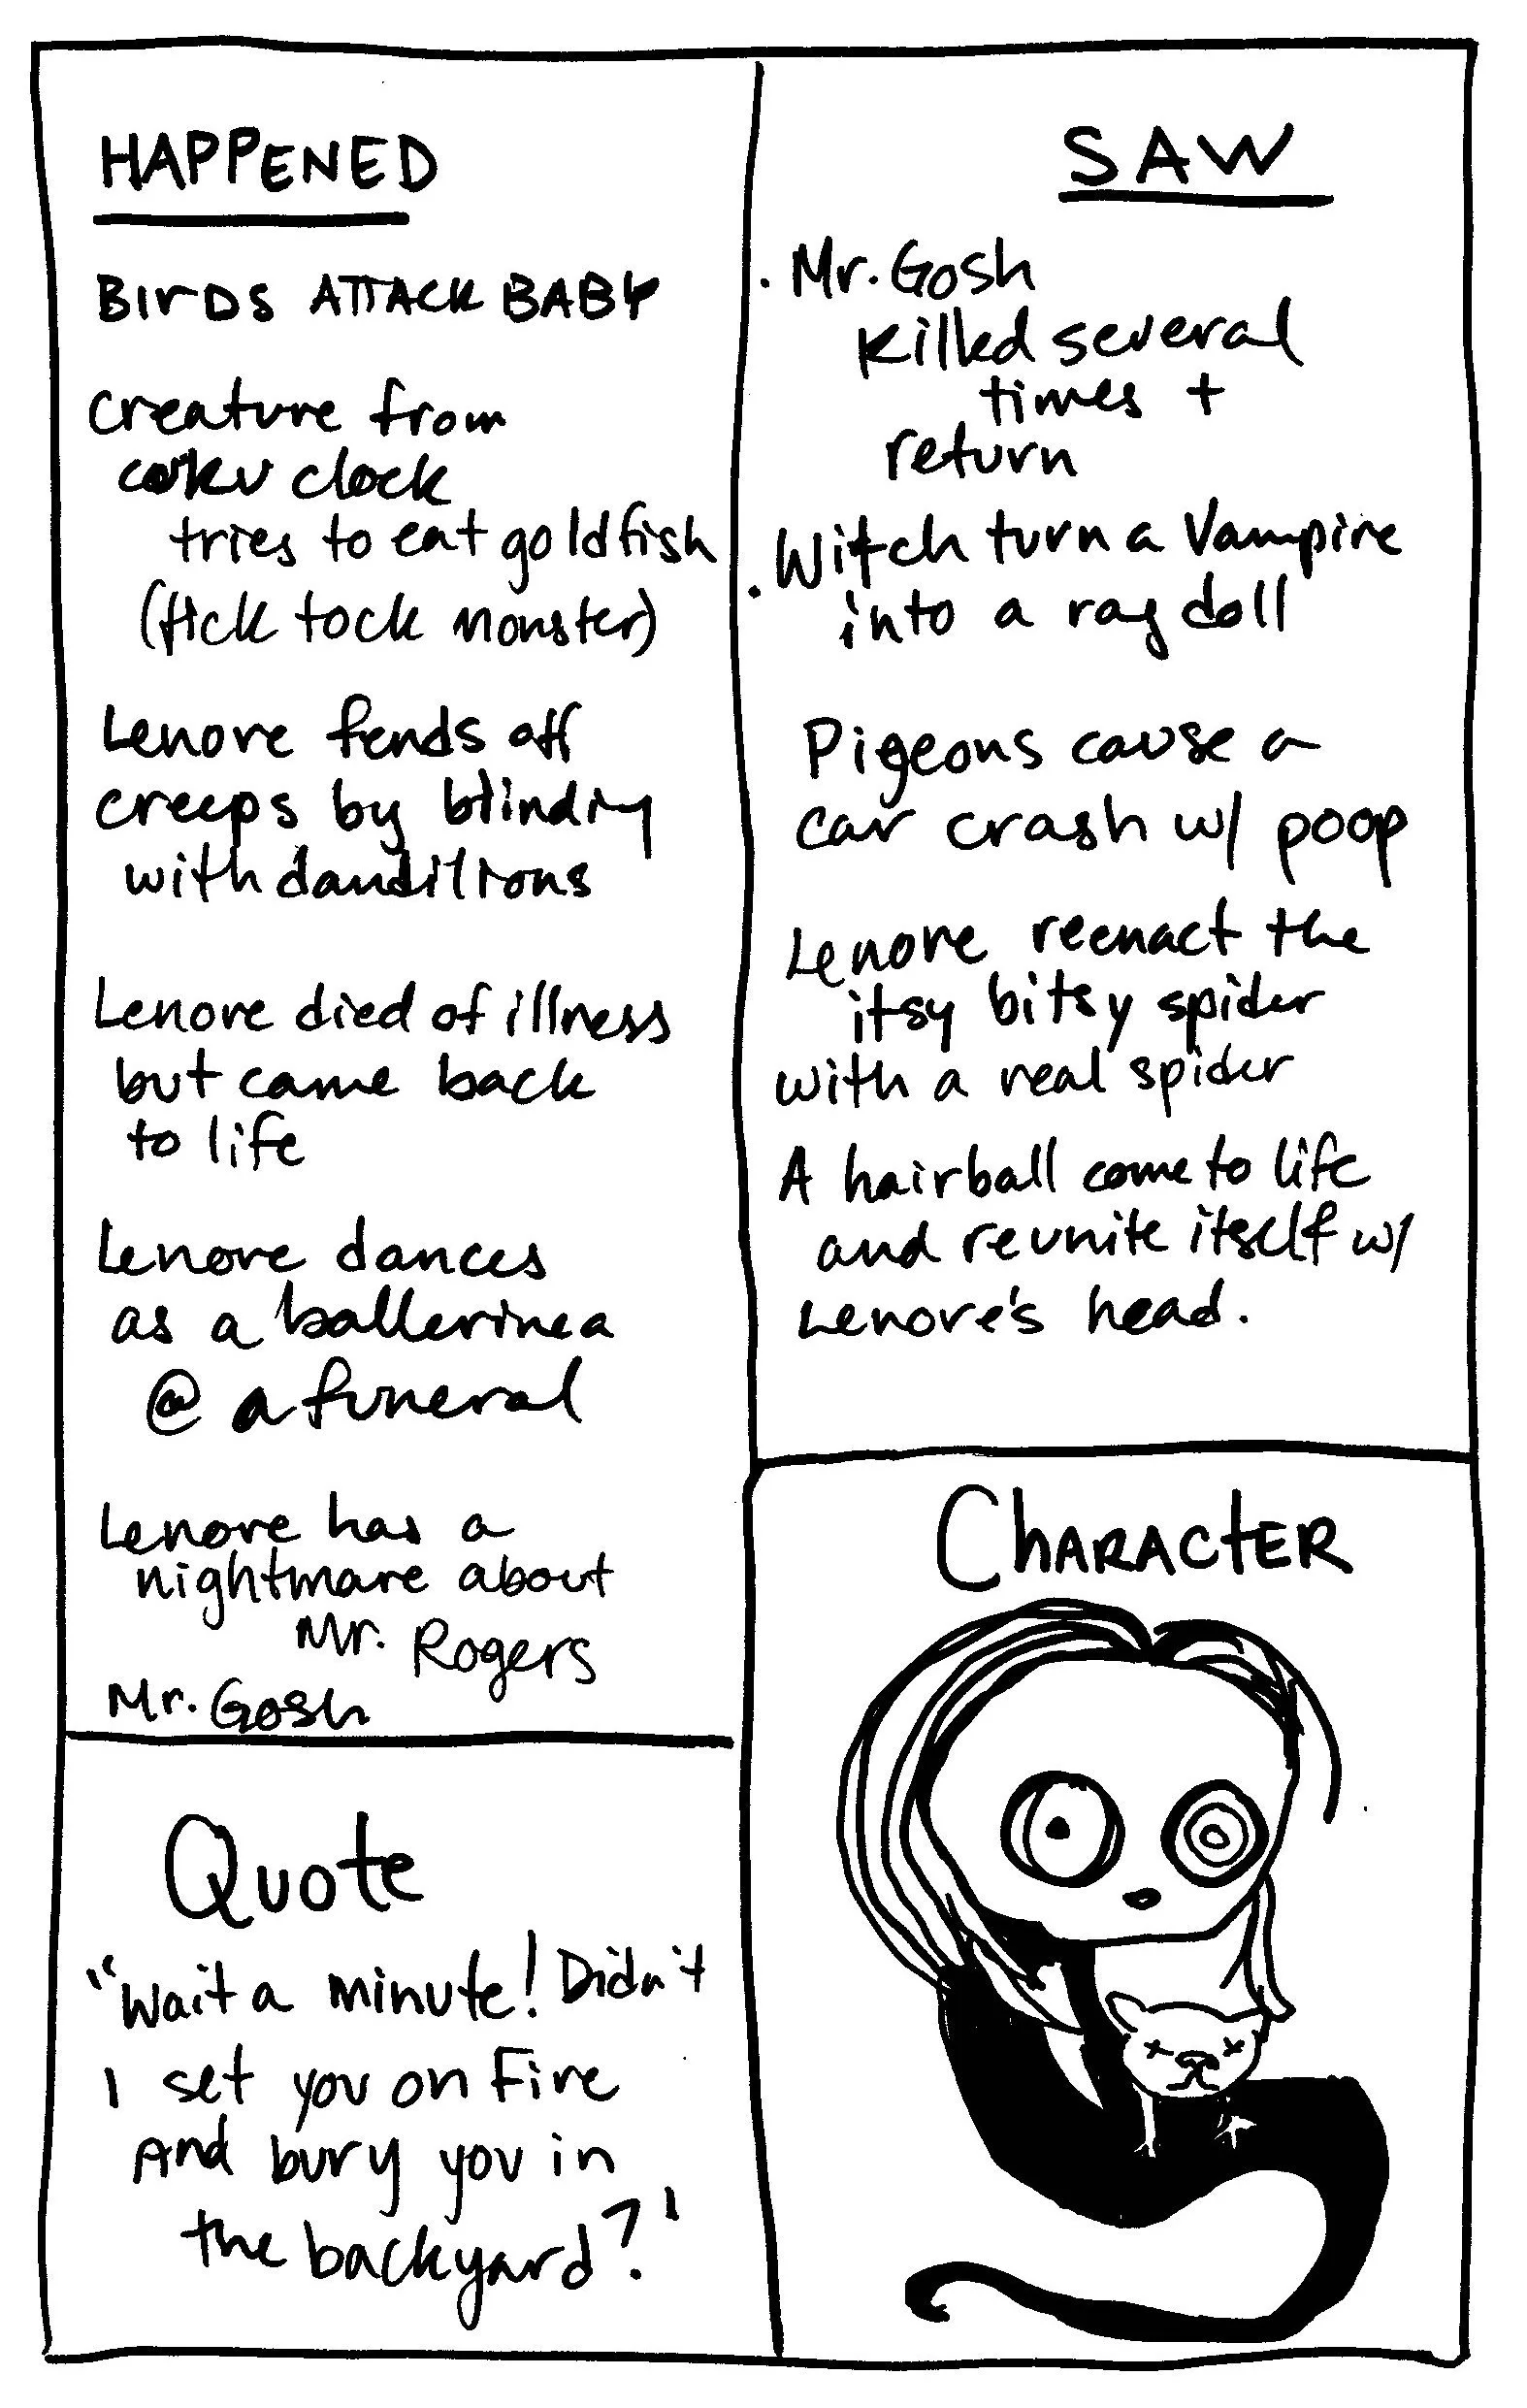 HAPPENED
BIrDS ATTACK BABY
Creature from
cuku clock
tries to eat goldfish
(tick tock monster)
Lenore fends off
creeps by blinding
with dandilions
Lenore died of illness
but came back
to life
Lenore dances
as a ballerinea
@ a funeral
Lenore has a
nightmare about
Mr. Rogers
Mr. Gosh
SAW
. Mr. Gosh
Killed several
times +
return
. Witch turn a Vampire
into a rag doll
Pigeons cause a
car crash w/ poop
Lenore reenact the
itsy bitsy spider
with a real spider
A hairball come to life
and reunite itself w/
Lenore's head.
Quote
"Wait a minute! Didn't
I set you on Fire
And bury you in
the backyard?"
ChARACtER